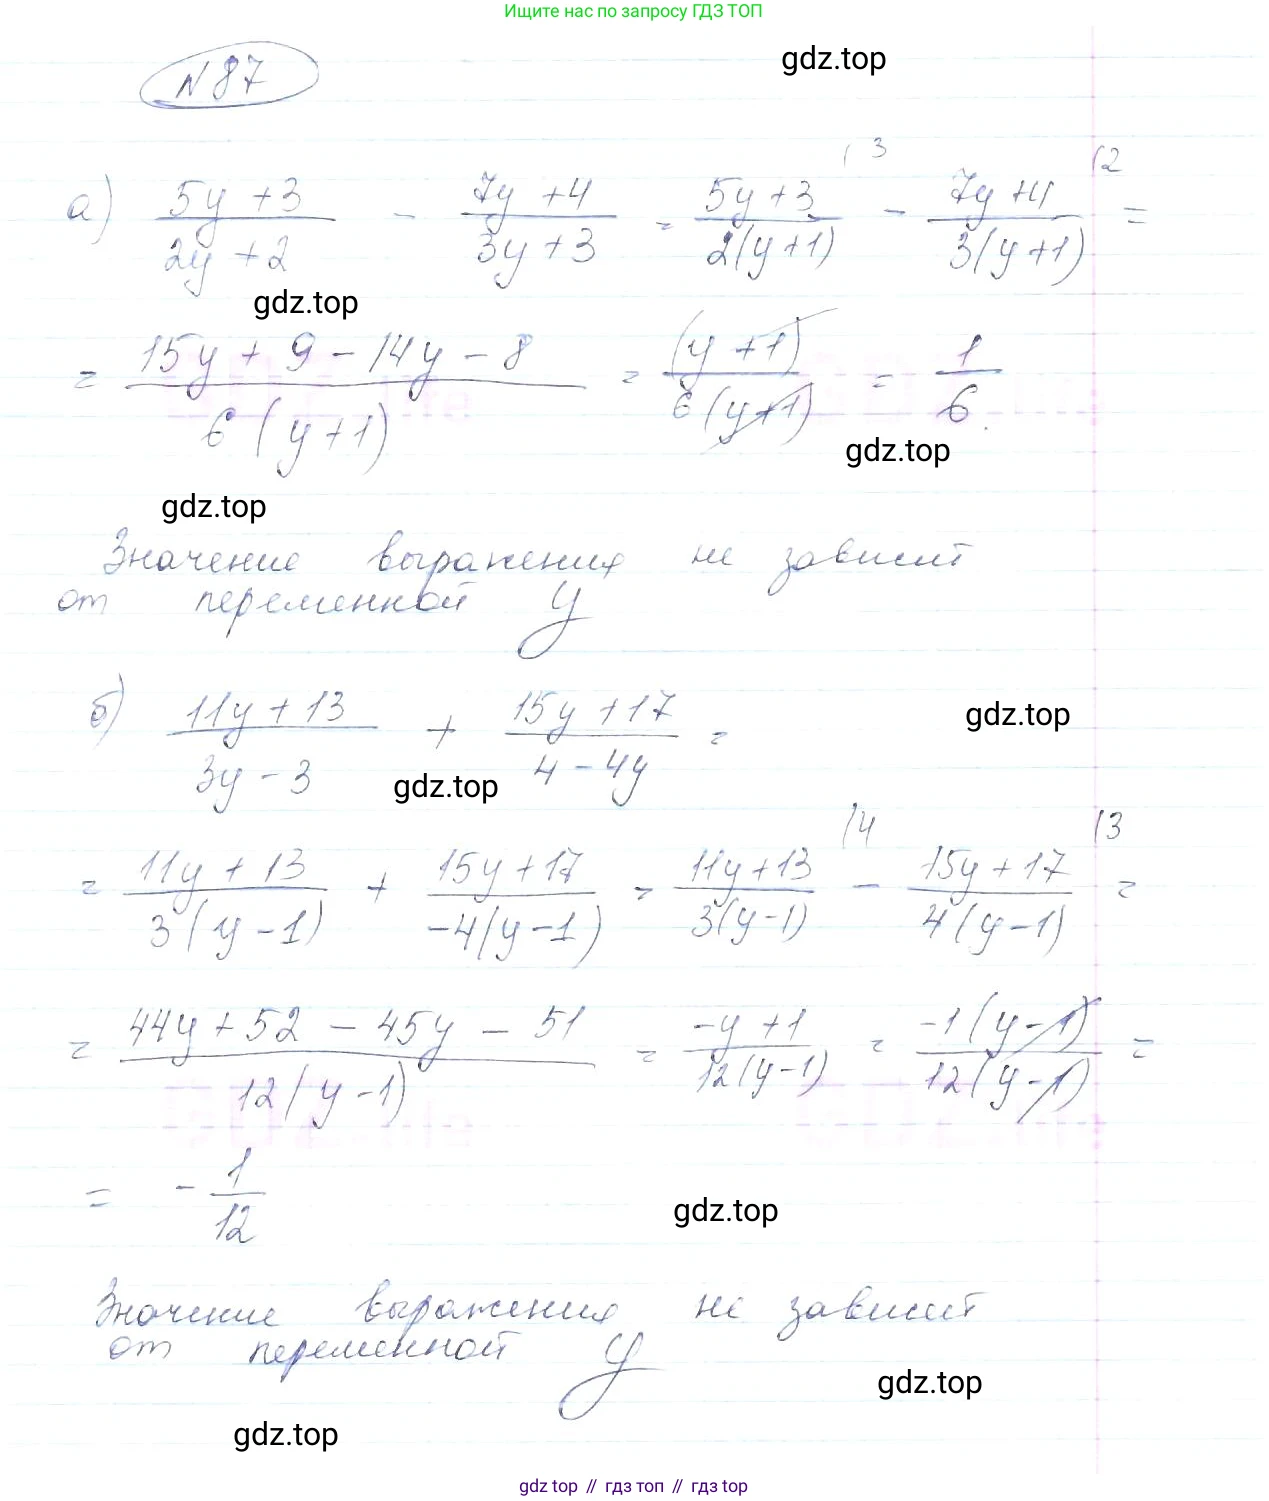 Ищите нас по запросу ГДЗ ТОП
N 87
gdz.top
а) (5y + 3)/(2y + 2) - (7y + 4)/(3y + 3) = (5y + 3)/(2(y+1)) (3 - (7y + 4)/(3(y+1)) (2 =
gdz.top
= (15y + 9 - 14y - 8)/(6(y+1)) = (y+1)/(6(y+1)) = 1/6.
gdz.top
gdz.top
Значение выражения не зависит
от переменной y
б) (11y + 13)/(3y - 3) + (15y + 17)/(4 - 4y) =
gdz.top
gdz.top
= (11y + 13)/(3(y - 1)) + (15y + 17)/(-4(y - 1)) = (11y + 13)/(3(y - 1)) (4 - (15y + 17)/(4(y - 1)) (3 =
= (44y + 52 - 45y - 51)/(12(y - 1)) = (-y + 1)/(12(y - 1)) = (-1(y - 1))/(12(y - 1)) =
= - 1/12
gdz.top
Значение выражения не зависит
от переменной y
gdz.top
gdz.top
gdz top // гдз топ // gdz top